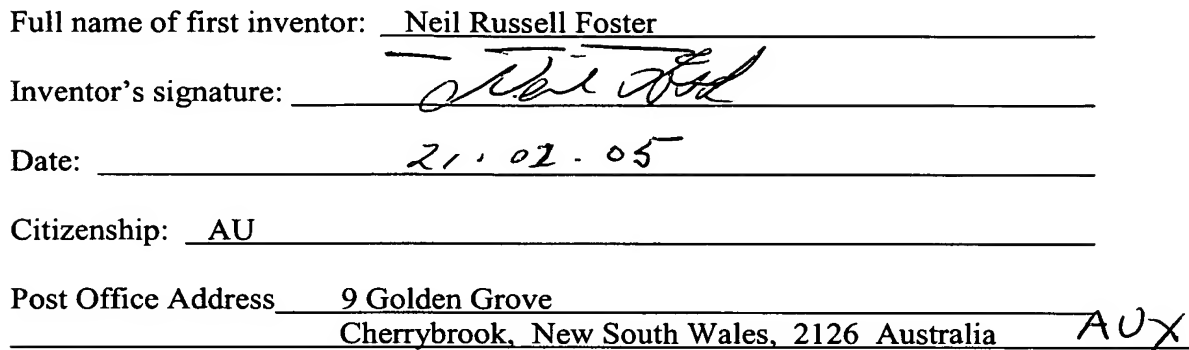 Full name of first inventor: Neil Russell Foster
Inventor's signature: Neil Foster
Date: 21.02.05
Citizenship: AU
Post Office Address 9 Golden Grove
Cherrybrook, New South Wales, 2126 Australia AUX